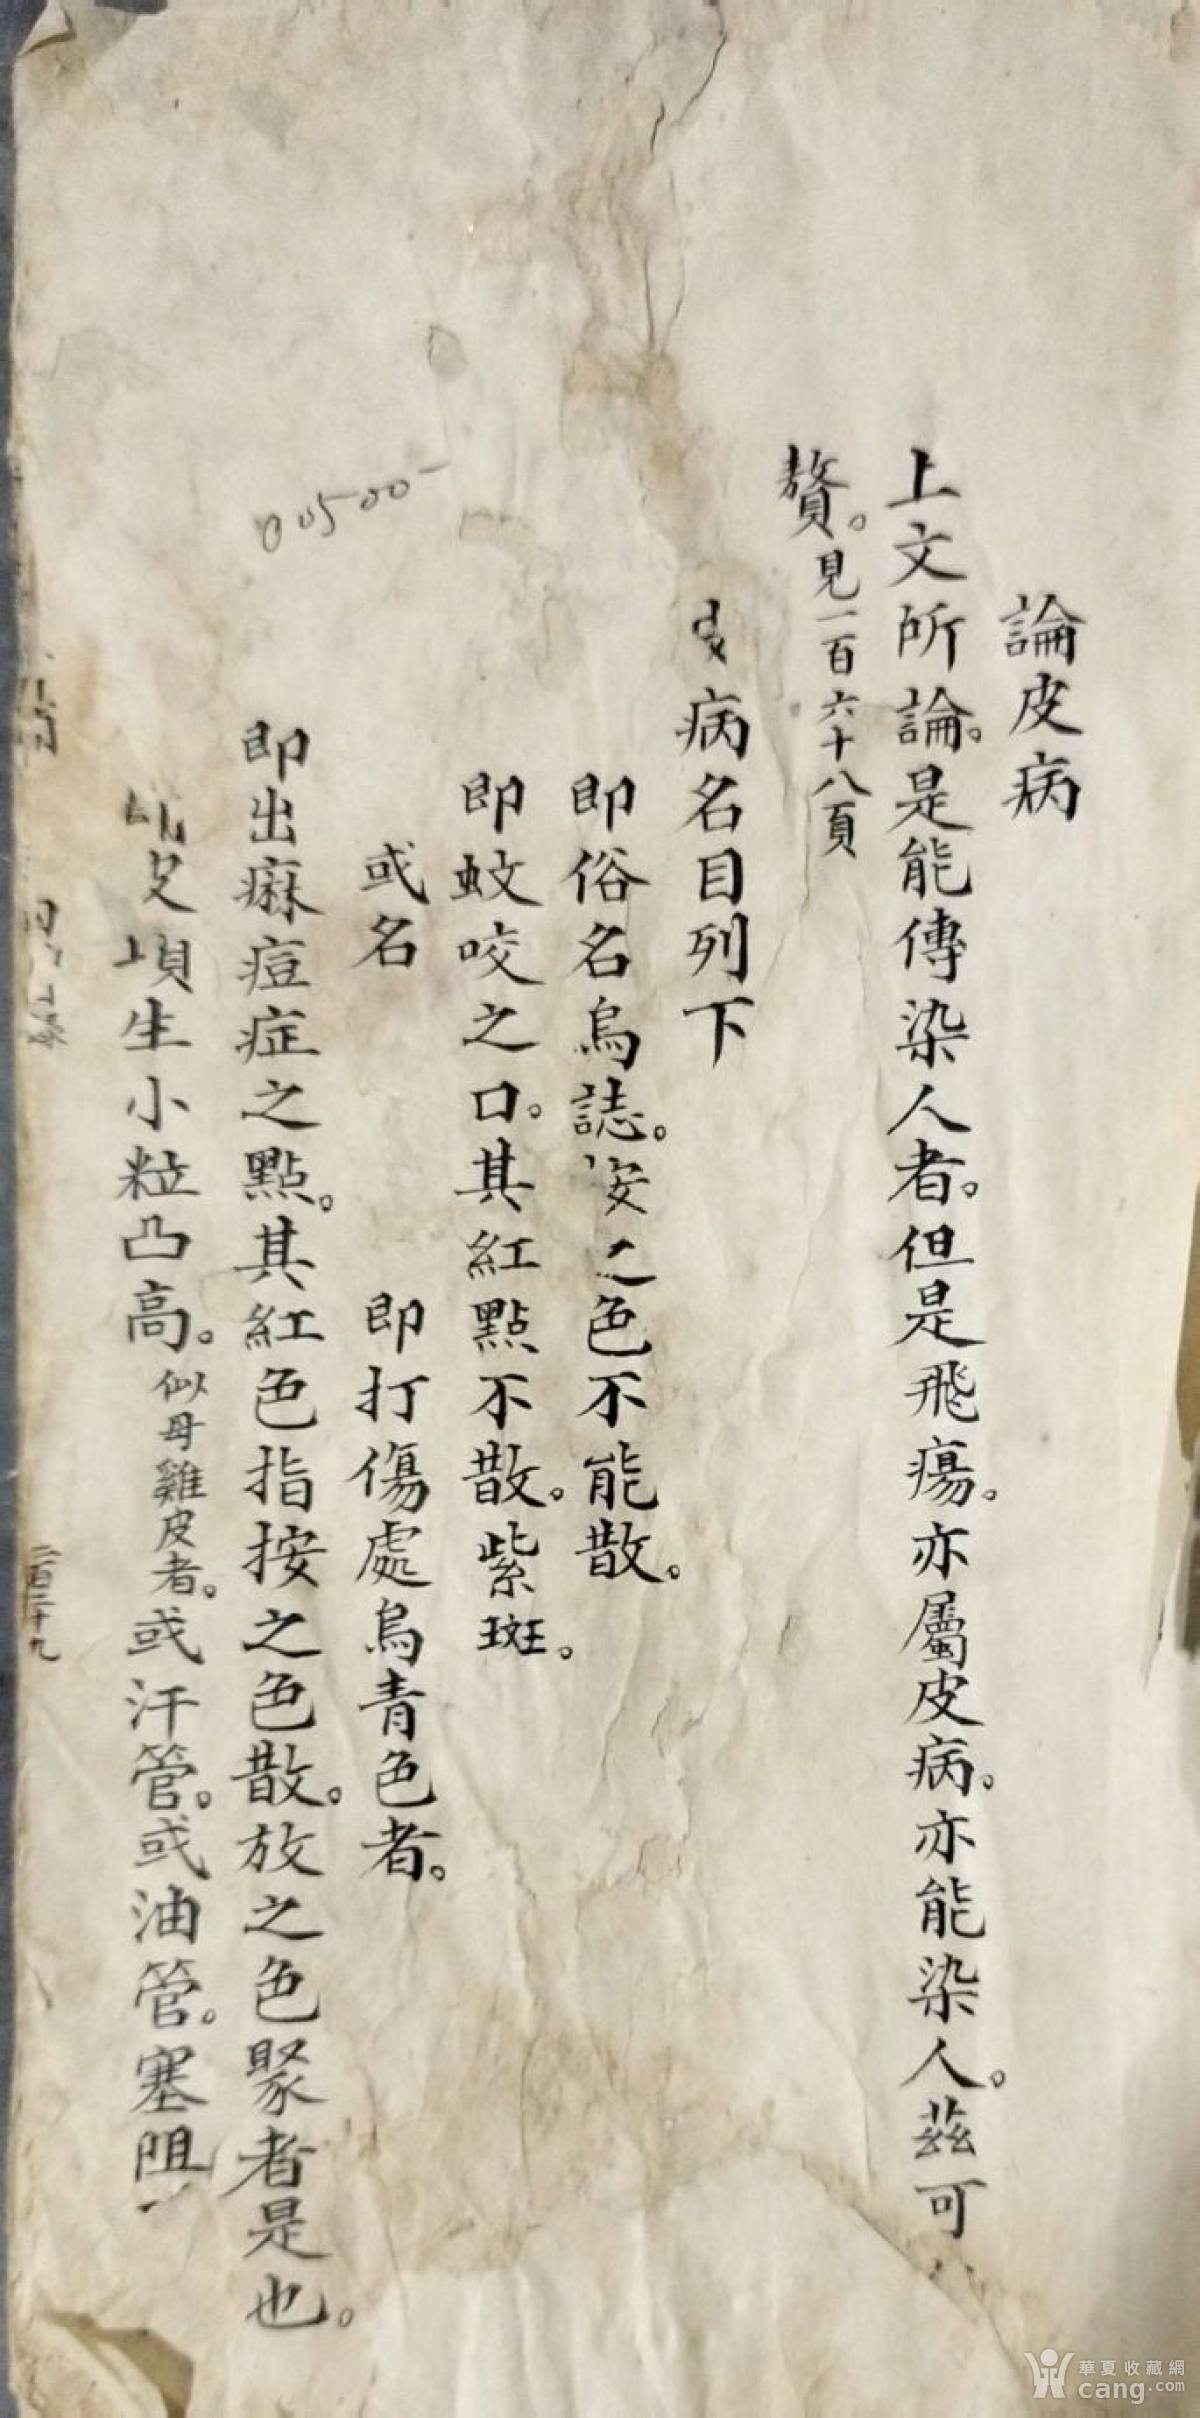 論皮病
上文所論。是能傳染人者。但是飛瘍。亦屬皮病。亦能染人。茲可
贅。見一百六十八頁
病名目列下
即俗名烏誌。按之色不能散。
即蚊咬之口。其紅點不散。紫斑。
或名 即打傷處烏青色者。
即出痳痘症之點。其紅色指按之色散。放之色聚者是也。
生小粒凸高。似母雞皮者。或汗管。或油管。塞阻
二百三十九
00500-
華夏收藏網
cang.com